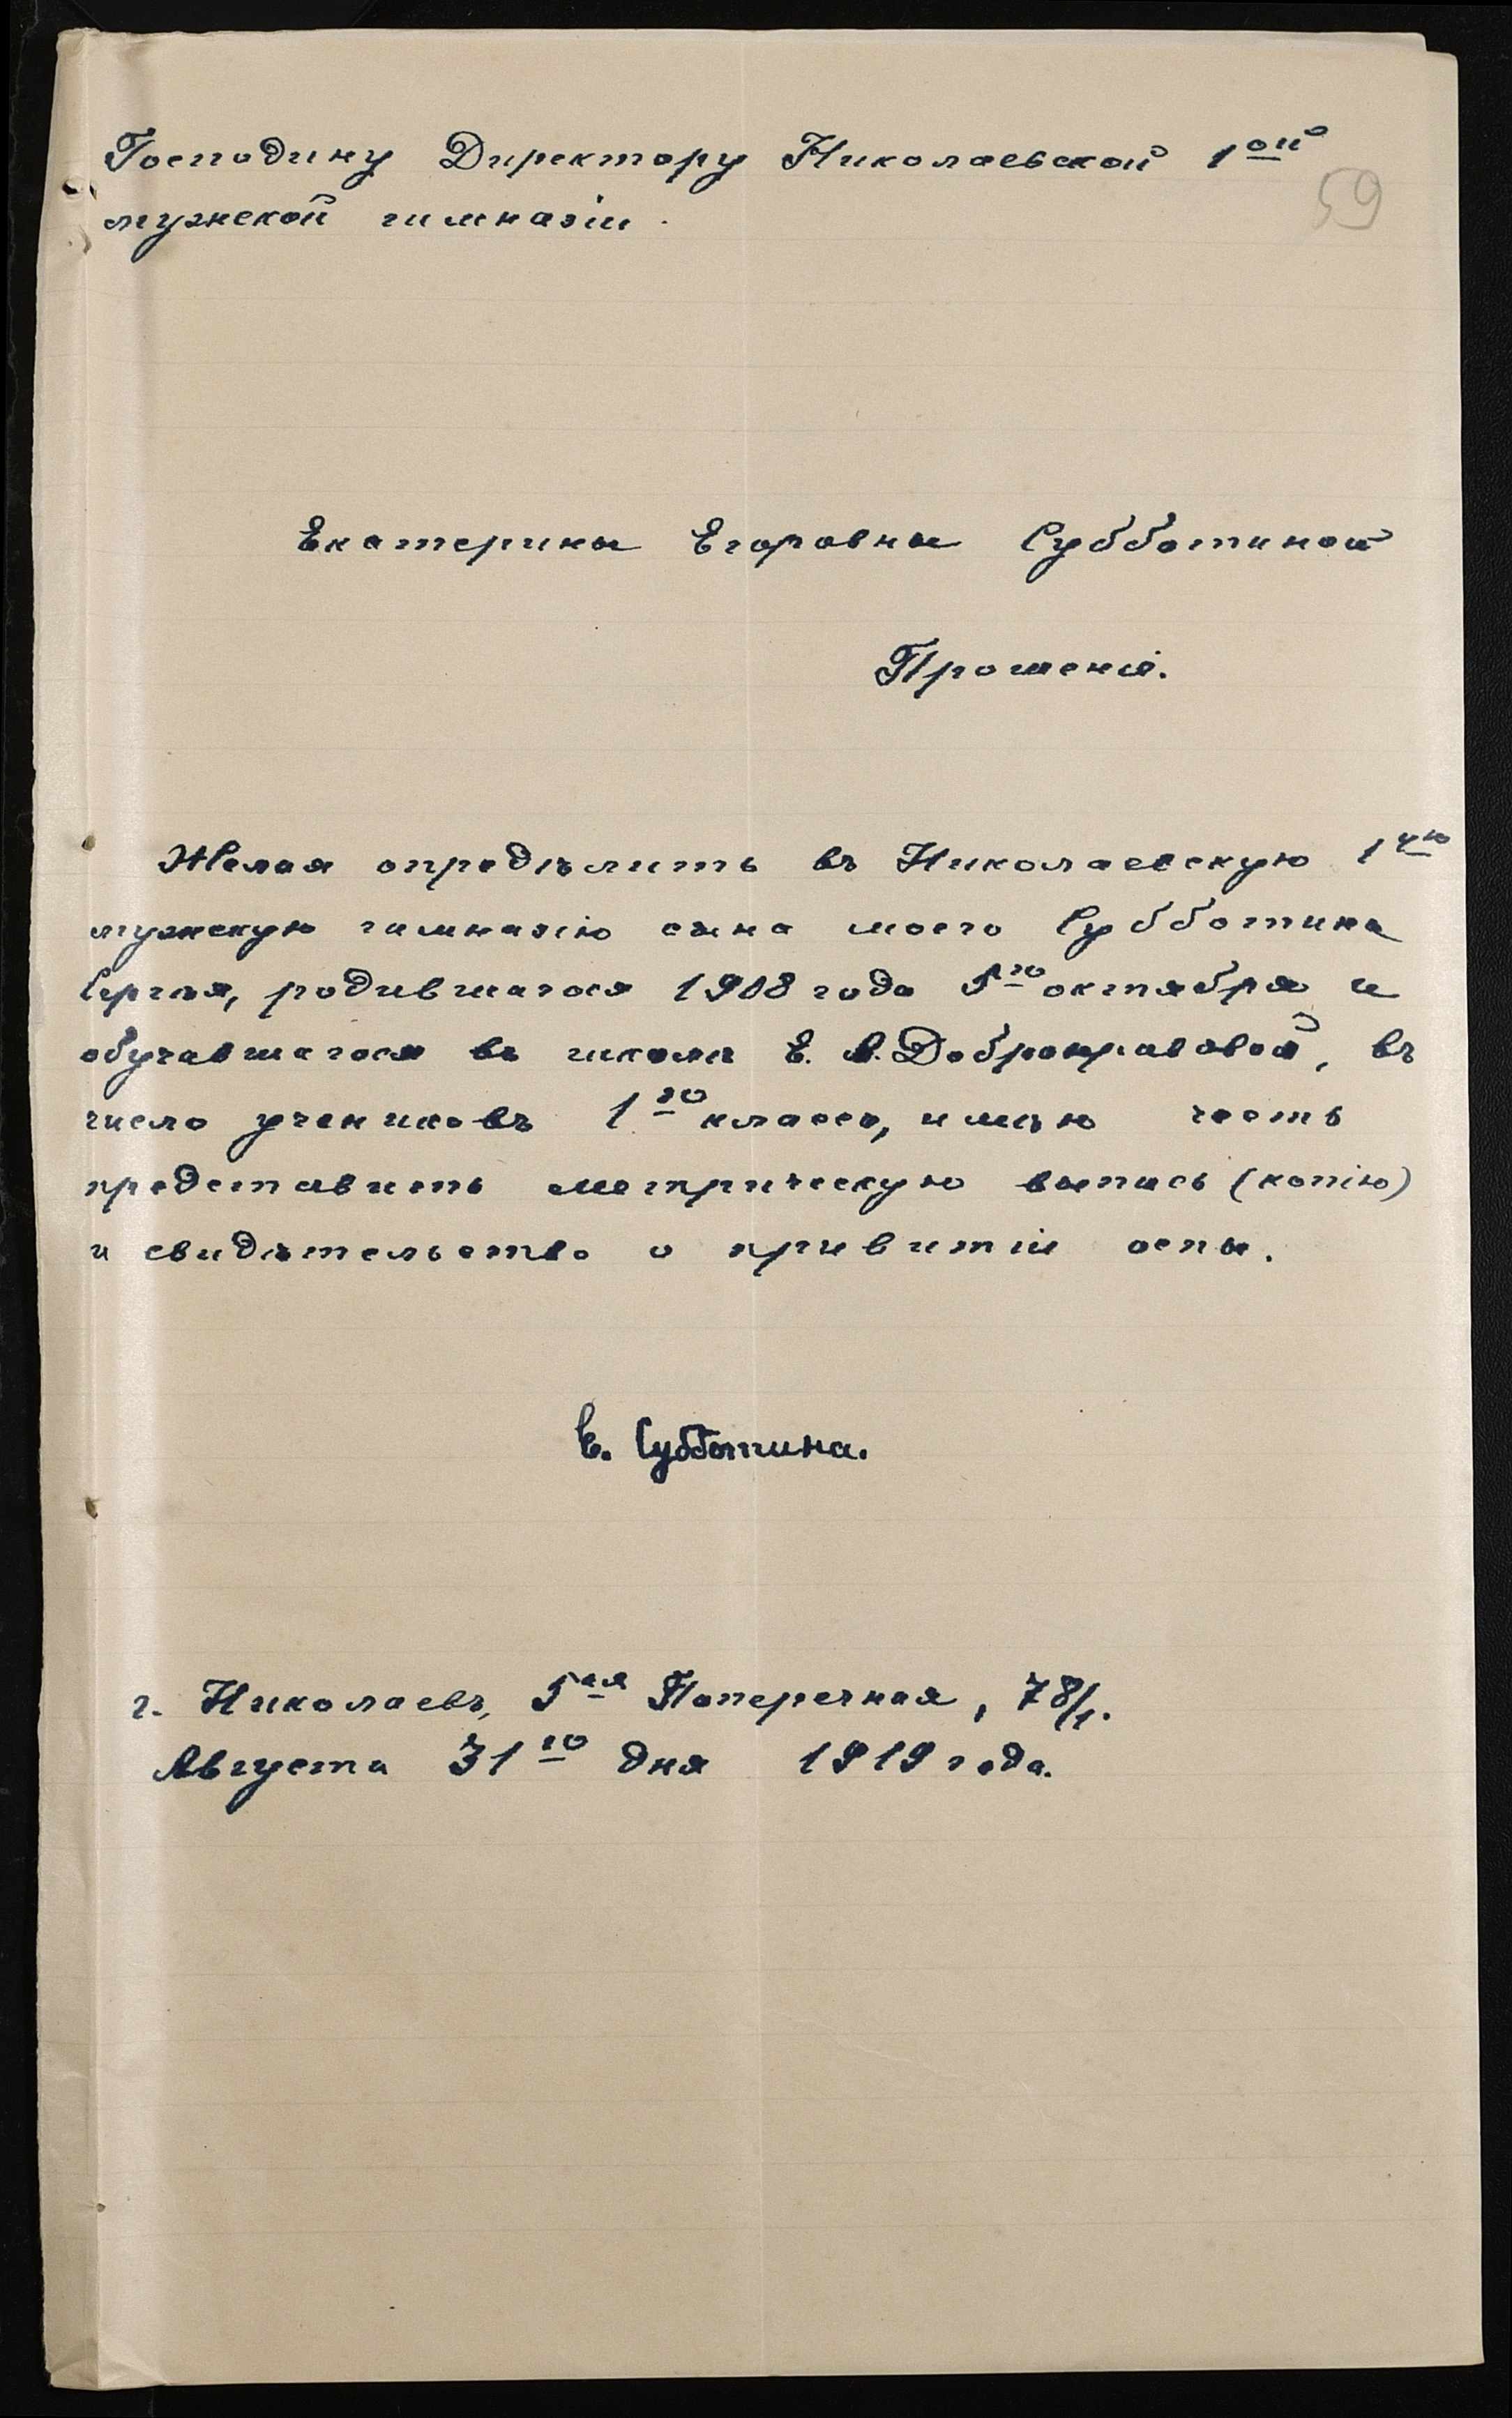 Господину Директору Николаевской 1ой
59
мужской гимназіи.
Екатерины Егоровны Субботиной
Прошеніе.
Желая опредѣлить въ Николаевскую 1ую
мужскую гимназію сына моего Субботина
Сергѣя, родившагося 1908 года 5го октября и
обучавшагося въ школѣ Е. А. Добронравовой, въ
число учениковъ 1го класса, имѣю честь
представить метрическую выпись (копію)
и свидѣтельство о привитіи оспы.
Е. Субботина.
г. Николаевъ, 5ая Поперечная, 78/1.
Августа 31го дня 1919 года.